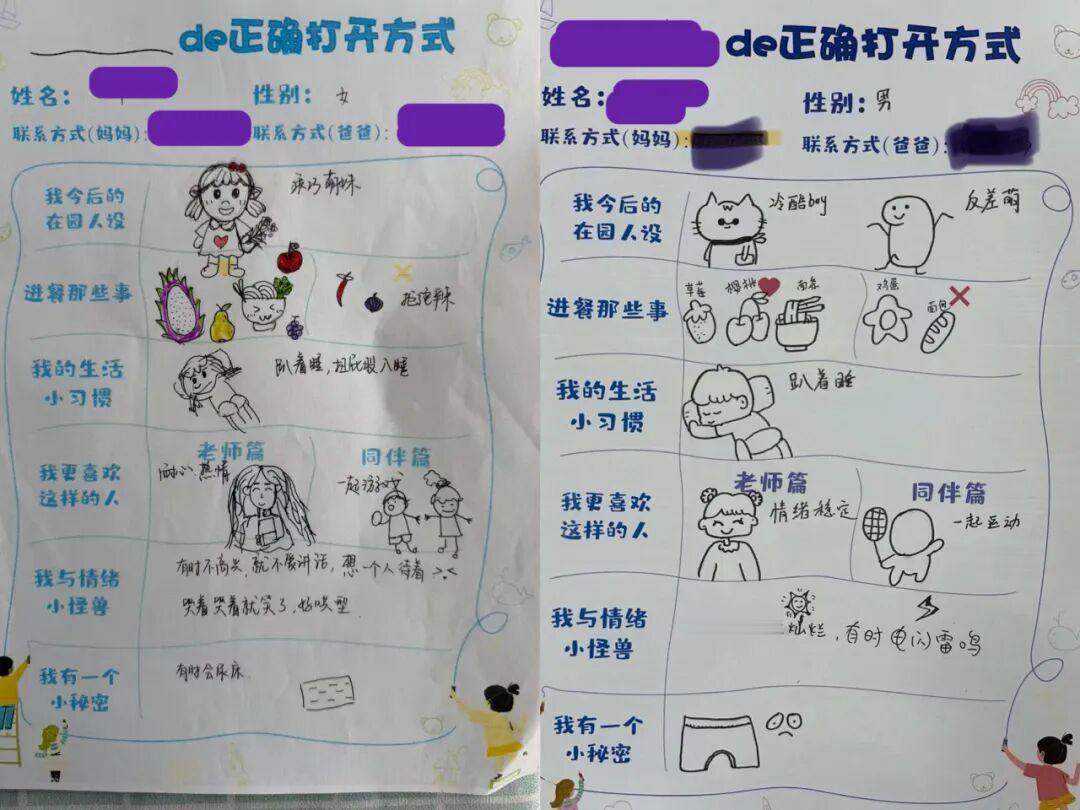 de正确打开方式
姓名：
性别： 女
联系方式(妈妈)：
联系方式(爸爸)：
我今后的
在园人设
乖巧萌妹
进餐那些事
拒绝辛辣
我的生活
小习惯
趴着睡，扭屁股入睡
我更喜欢
这样的人
老师篇
耐心 热情
同伴篇
一起游戏
我与情绪
小怪兽
有时不高兴，就不爱讲话，想一个人待着 >.<
哭着哭着就笑了，好哄型
我有一个
小秘密
有时会尿床
de正确打开方式
姓名：
性别： 男
联系方式(妈妈)：
联系方式(爸爸)：
我今后的
在园人设
冷酷boy
反差萌
进餐那些事
草莓
樱桃
面条
鸡蛋
面包
我的生活
小习惯
趴着睡
我更喜欢
这样的人
老师篇
情绪稳定
同伴篇
一起运动
我与情绪
小怪兽
灿烂，有时电闪雷鸣
我有一个
小秘密